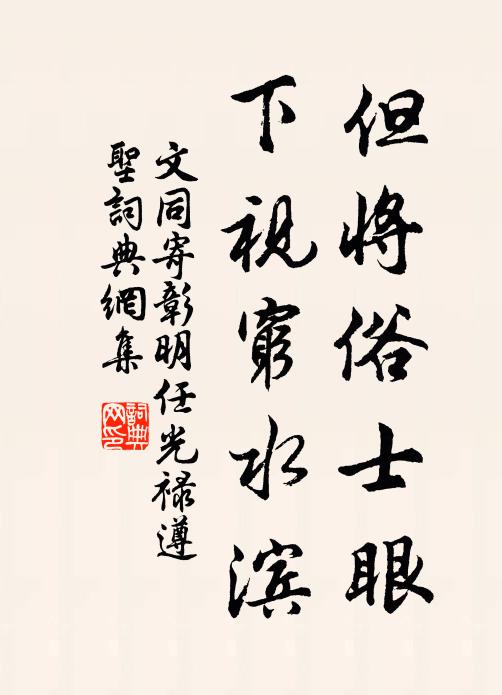 但将俗士眼
下视穷水滨
文同寄彰明任光禄遵
聖詞典網集
詞典网印